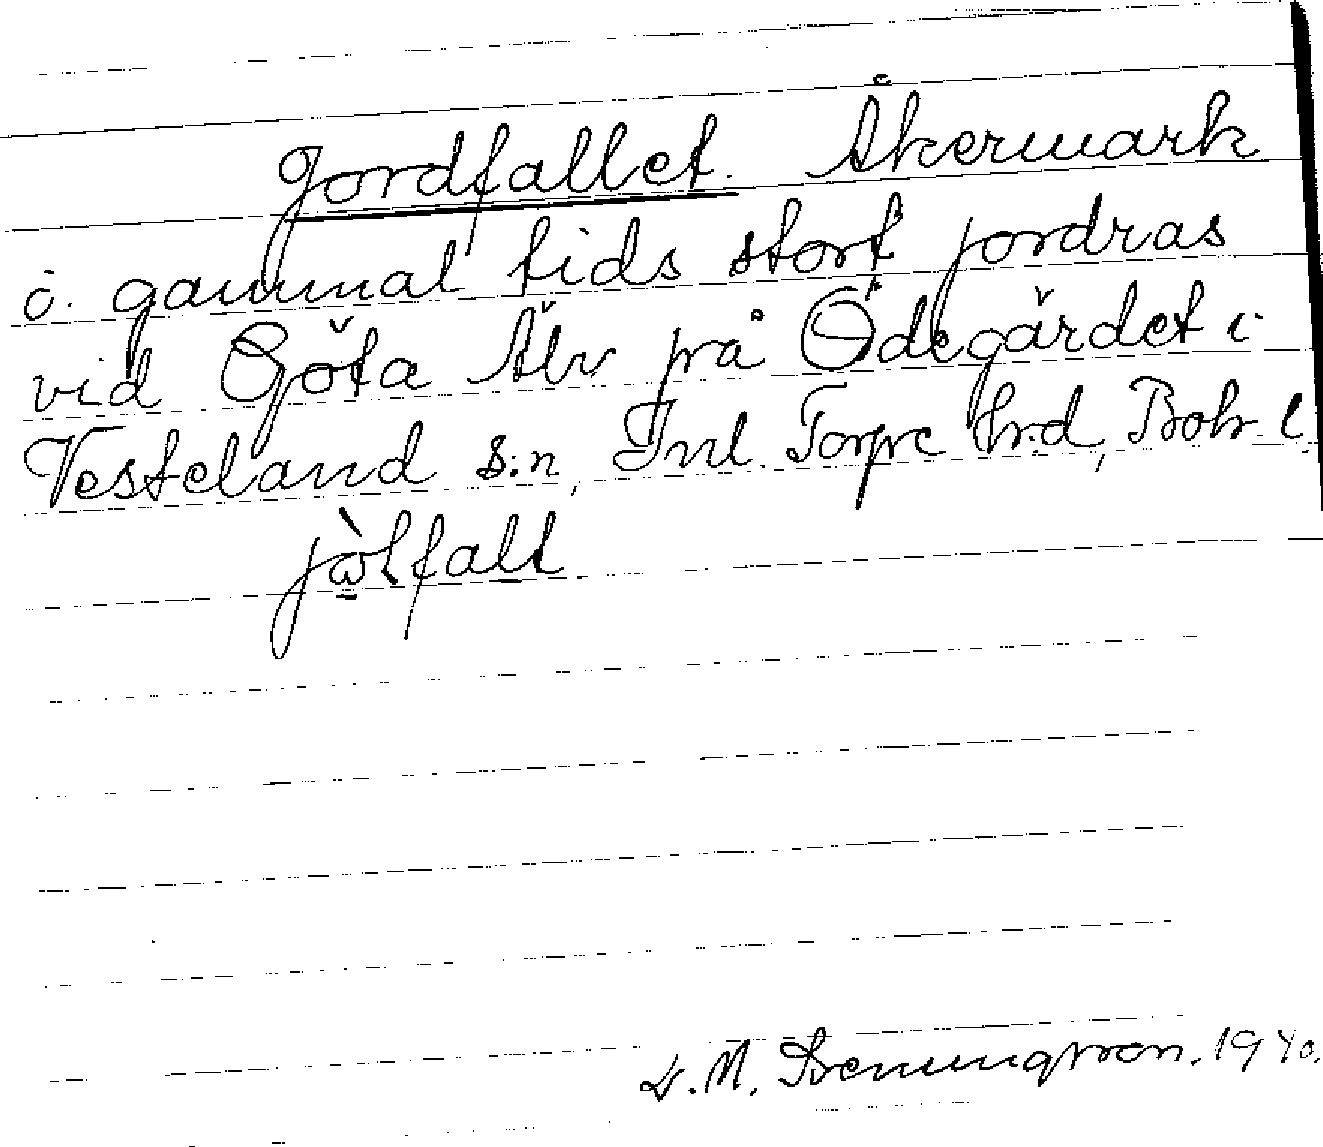 Jordfallet. Åkermark
i gammal tids stort jordras
vid Göta Älv på Ödegärdet i
Vesteland s:n, Inl. Torpe hrd, Boh. l.
jòlfall
1940.